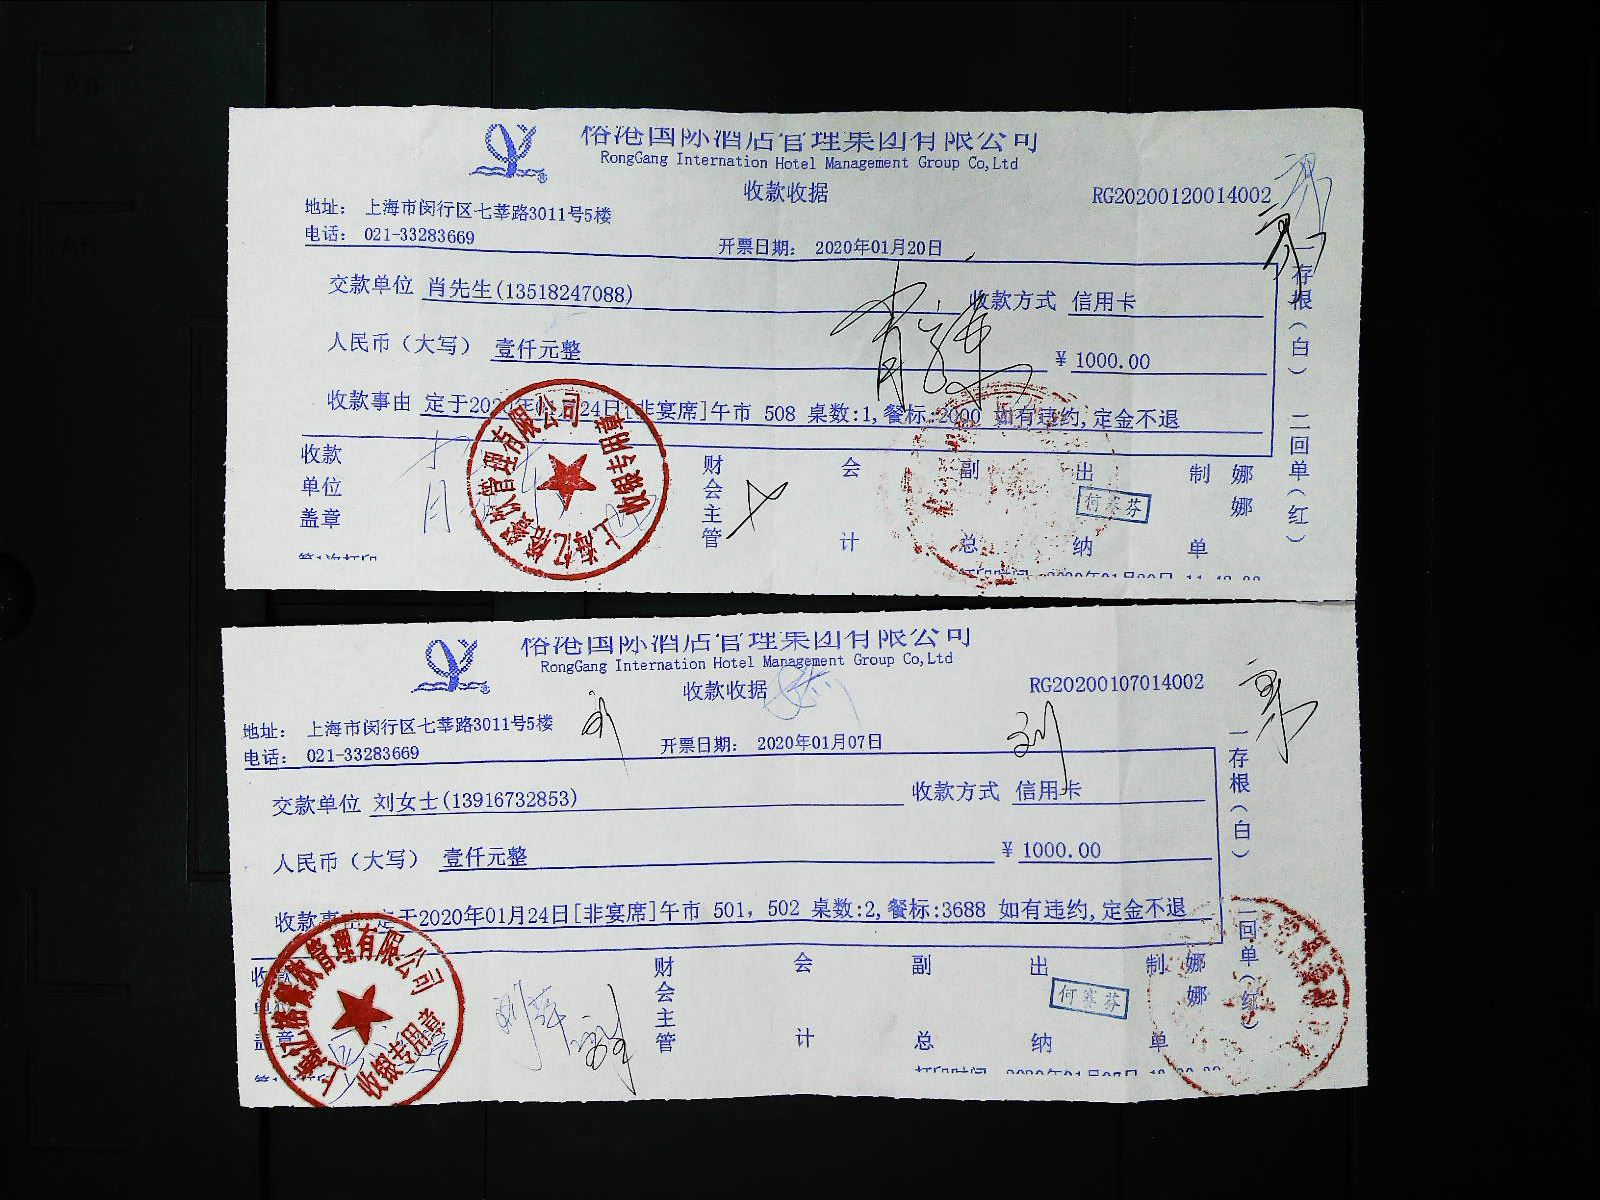 裕港国际酒店管理集团有限公司
RongGang Internation Hotel Management Group Co,Ltd
收款收据
RG20200120014002
地址： 上海市闵行区七莘路3011号5楼
电话： 021-33283669
开票日期： 2020年01月20日
交款单位 肖先生(13518247088)
收款方式 信用卡
人民币（大写） 壹仟元整
¥ 1000.00
收款事由 定于2020年01月24日[非宴席]午市 508 桌数:1,餐标:2000 如有违约,定金不退
一存根(白) 二回单(红)
收款单位盖章
财会主管
会计
副总
出纳
何寒芬
制单
娜娜
收银专用章
第1次打印
打印时间
裕港国际酒店管理集团有限公司
RongGang Internation Hotel Management Group Co,Ltd
收款收据
RG20200107014002
地址： 上海市闵行区七莘路3011号5楼
电话： 021-33283669
开票日期： 2020年01月07日
刘
交款单位 刘女士(13916732853)
收款方式 信用卡
人民币（大写） 壹仟元整
¥ 1000.00
收款事由 定于2020年01月24日[非宴席]午市 501, 502 桌数:2,餐标:3688 如有违约,定金不退
一存根(白) 二回单(红)
收款单位盖章
财会主管
会计
副总
出纳
何寒芬
制单
娜娜
收银专用章
打印时间